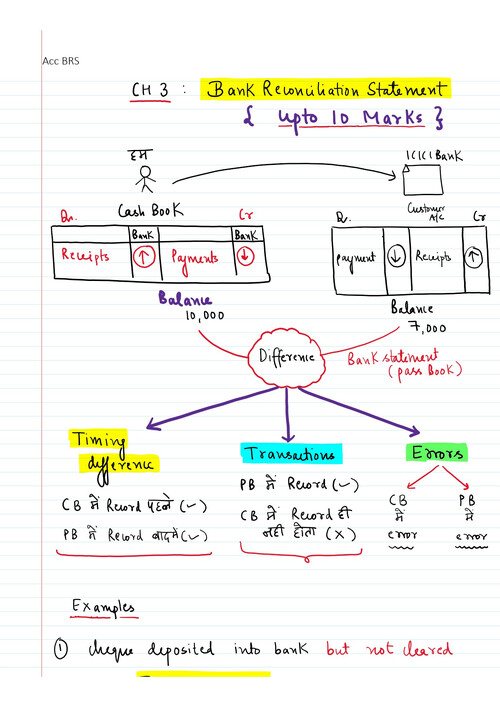 Acc BRS
CH 3 : Bank Reconciliation Statement
{ Upto 10 Marks }
हम
ICICI Bank
Dr. Cash Book Cr
Bank Bank
Receipts ↑ Payments ↓
Dr. Customer A/c Cr
payment ↓ Receipts ↑
Balance
10,000
Balance
7,000
Difference
Bank statement
(pass Book)
Timing
difference
CB में Record पहले (✓)
PB में Record बाद में (✓)
Transactions
PB में Record (✓)
CB में Record ही
नहीं होता (X)
Errors
CB
में
error
PB
में
error
Examples
① cheque deposited into bank but not cleared